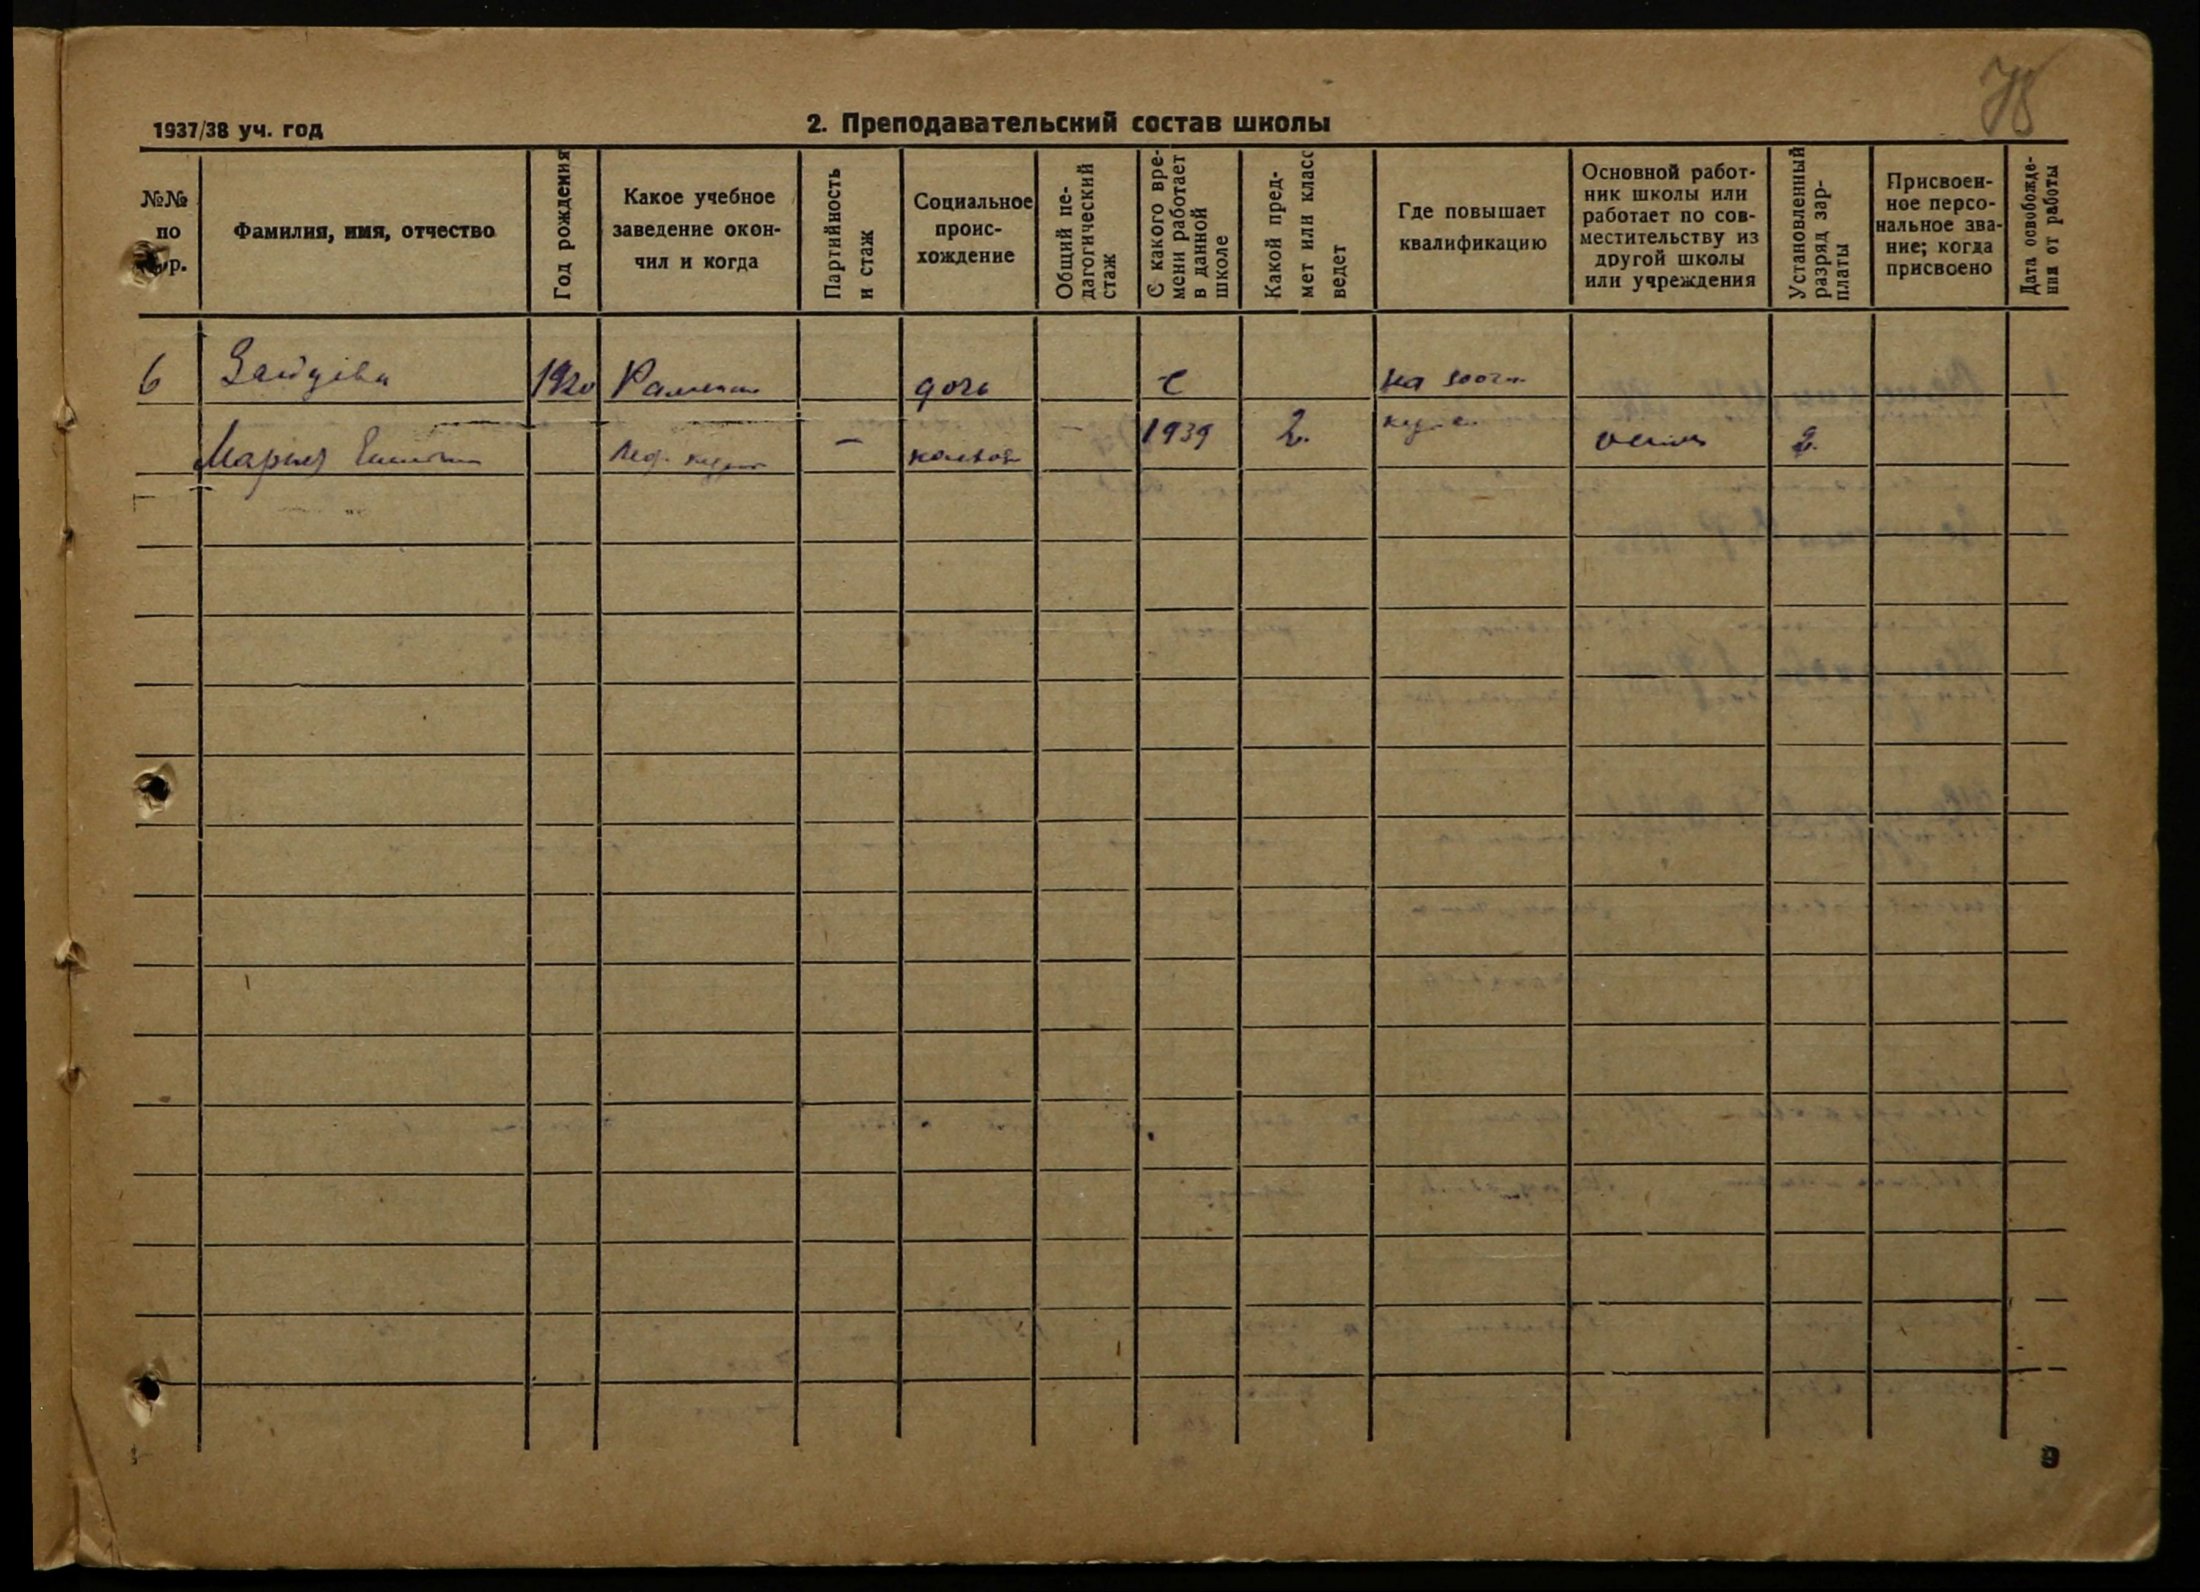 78
1937/38 уч. год
2. Преподавательский состав школы
№№
по
пор.
Фамилия, имя, отчество
Год рождения
Какое учебное
заведение окон-
чил и когда
Партийность
и стаж
Социальное
проис-
хождение
Общий пе-
дагогический
стаж
С какого вре-
мени работает
в данной
школе
Какой пред-
мет или класс
ведет
Где повышает
квалификацию
Основной работ-
ник школы или
работает по сов-
местительству из
другой школы
или учреждения
Установленный
разряд зар-
платы
Присвоен-
ное персо-
нальное зва-
ние; когда
присвоено
Дата освобожде-
ния от работы
6
1920
дочь
с
на
Мария
Пед. курсы
–
–
1939
2.
2.
9